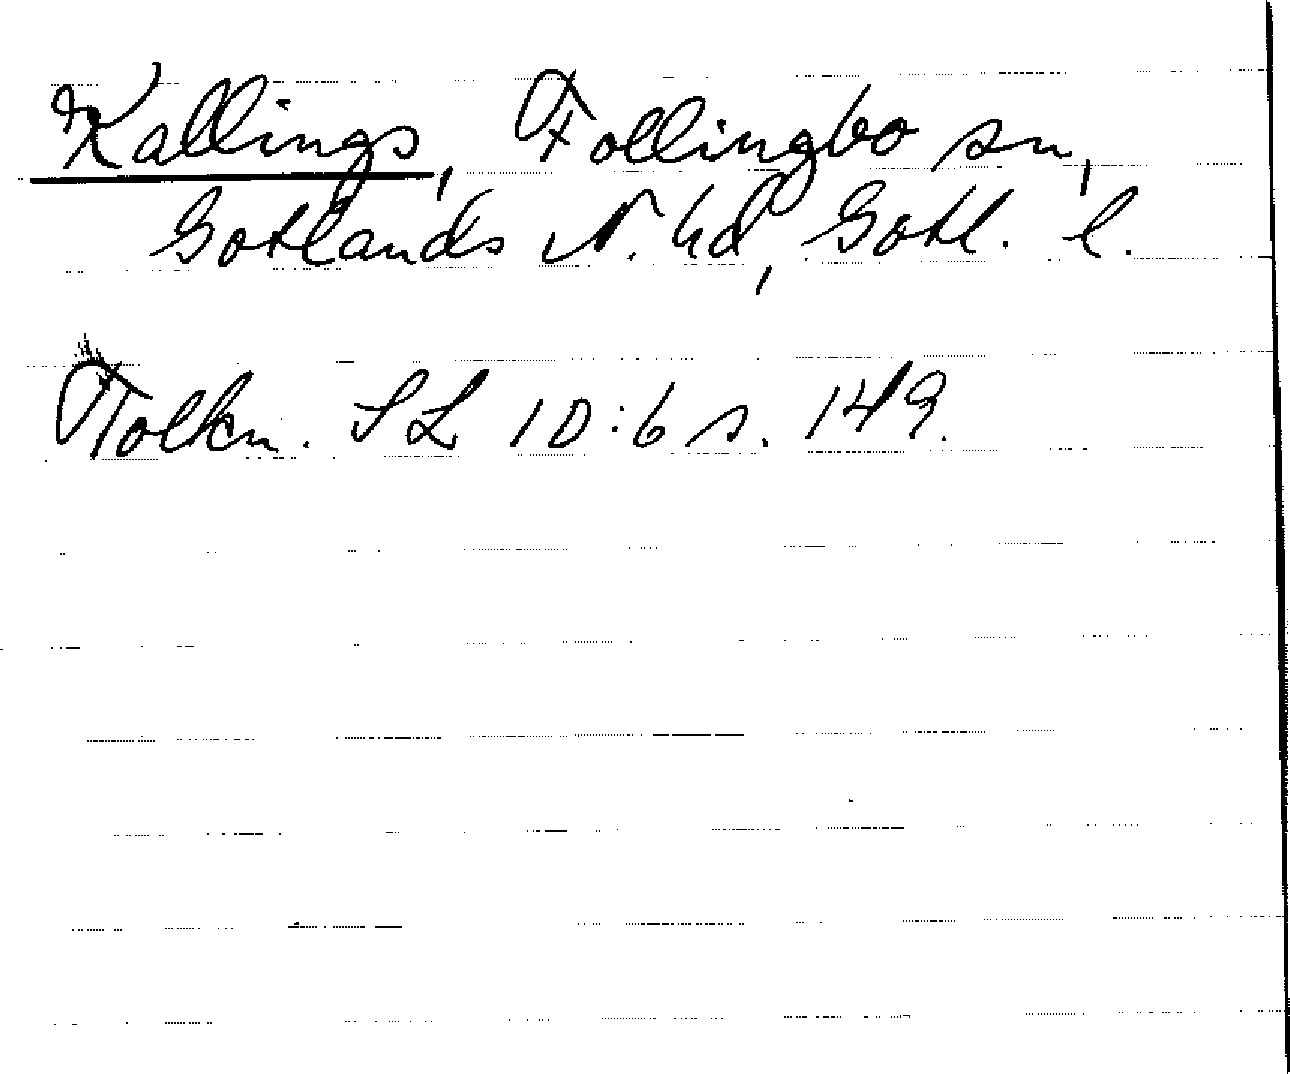 Kallings, Follingbo sn,
Gotlands N. hd, Gotl. l.
Tolkn. SL 10:6 s. 149.